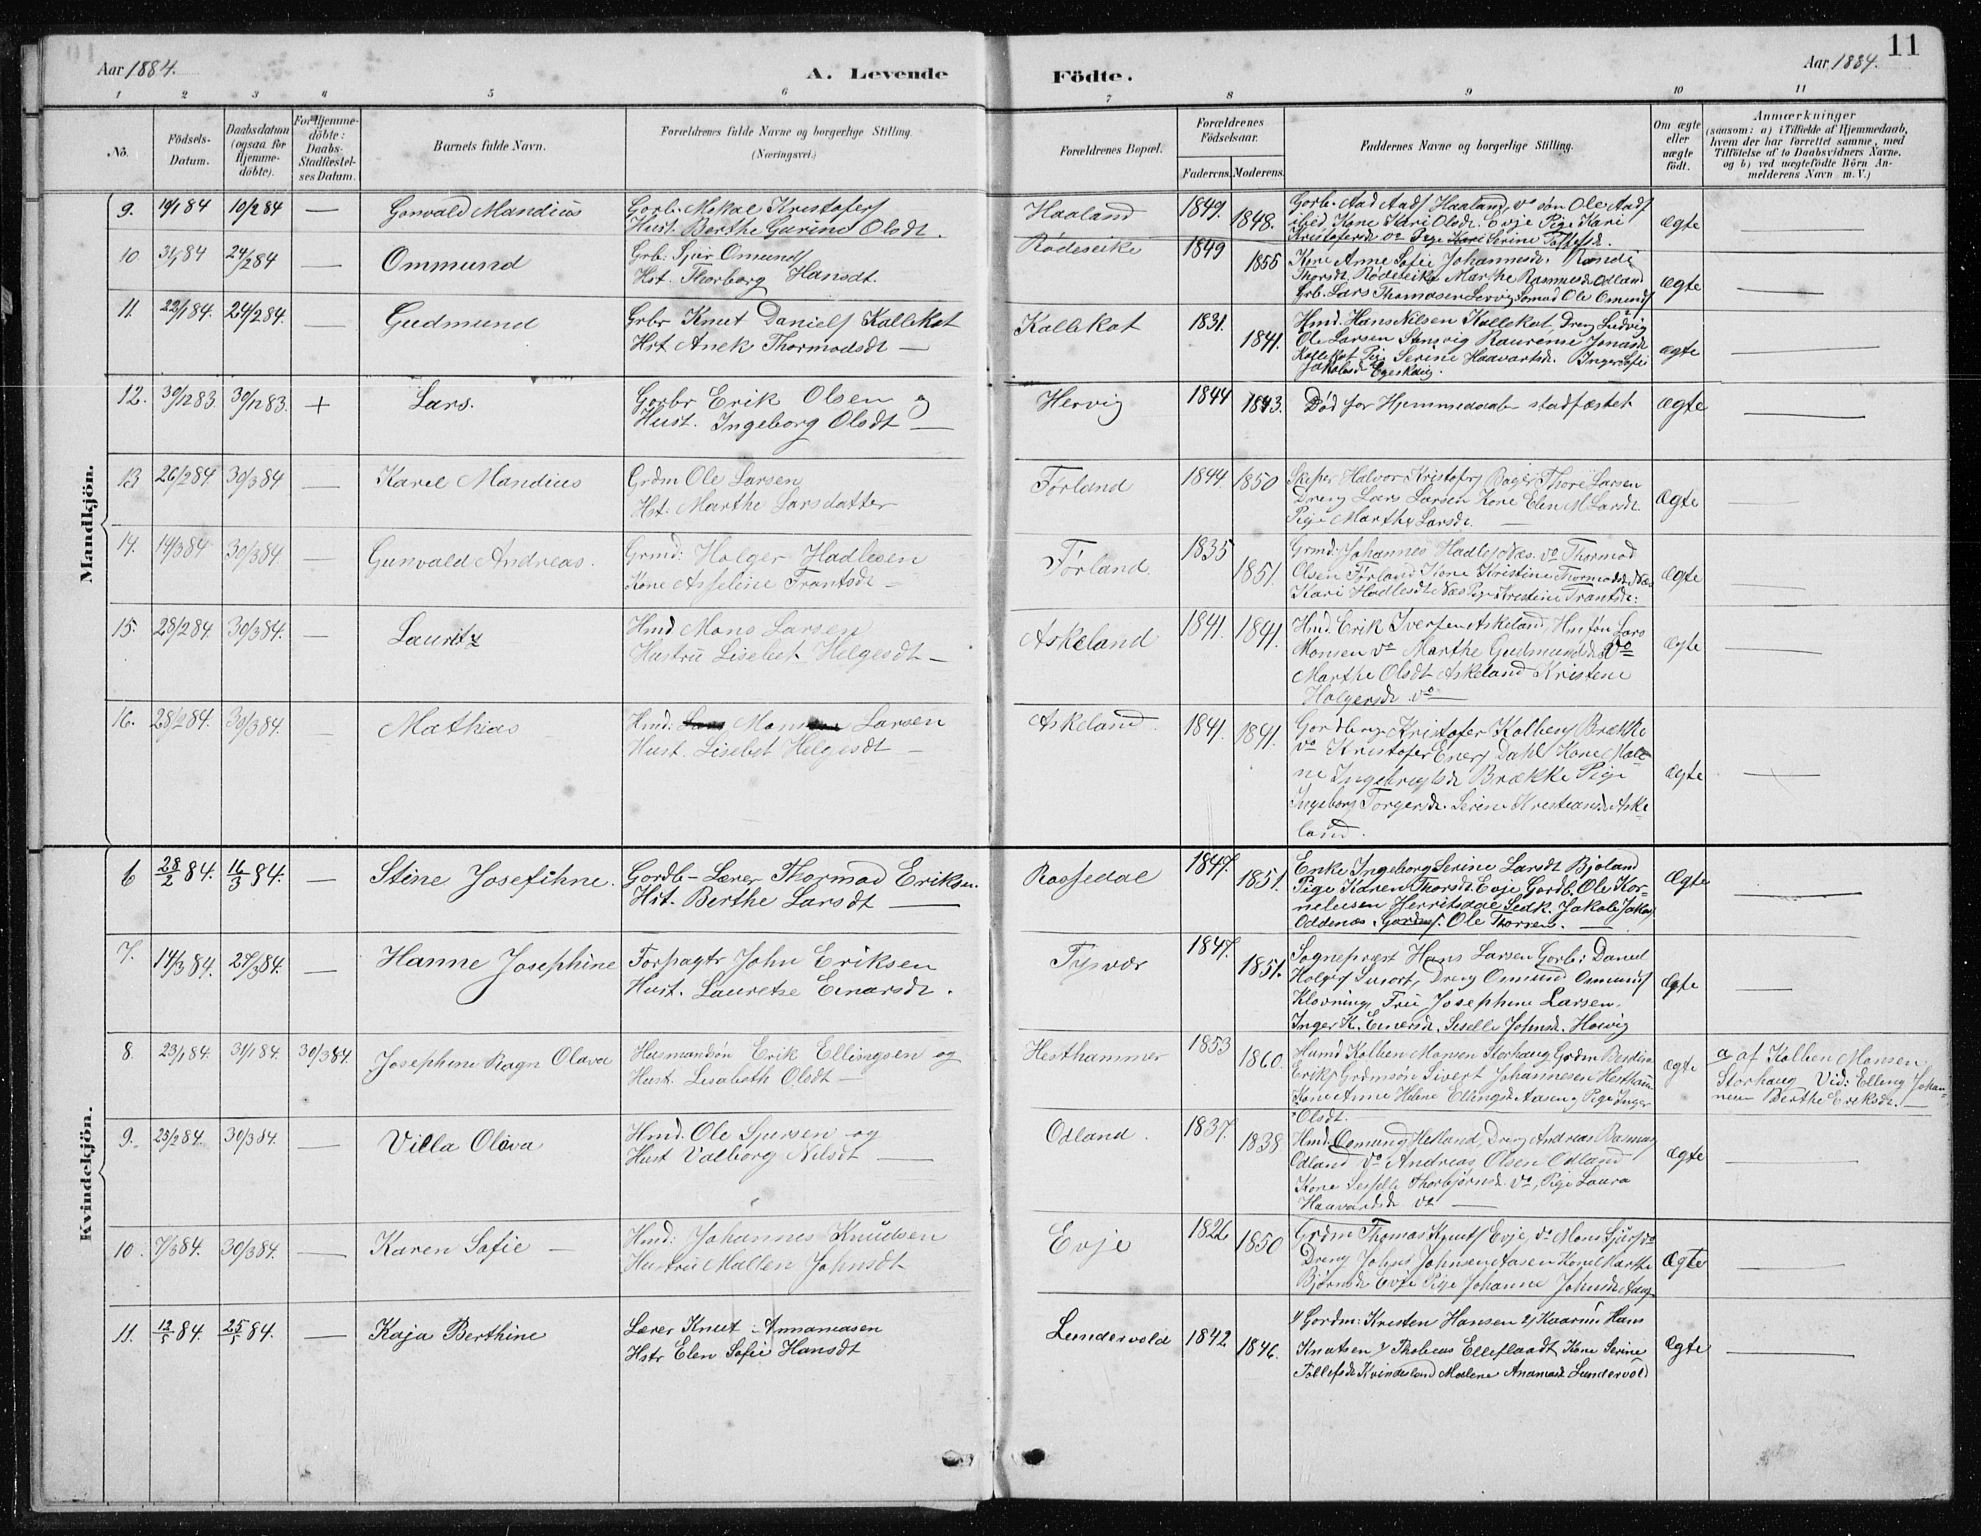 Aar 1884.
A. Levende Födte.
Aar 1884.
11
1 2 3 4 5 6 7 8 9 10 11
No.
Födsels-Datum.
Daabsdatum (ogsaa för Hjemme-döbte).
For Hjemme-döbte: Daabs-Stadfæstel-ses Datum.
Barnets fulde Navn.
Forældrenes fulde Navne og borgerlige Stilling. (Næringsvei.)
Forældrenes Bopæl.
Forældrenes Födselsaar.
Faderens. Moderens.
Faddernes Navne og borgerlige Stilling.
Om ægte eller uægte födt.
Anmærkninger
(saasom: a) i Tilfælde af Hjemmedaab,
hvem der har forrettet samme, med
Tilföielse af to Daabsvidners Navne,
og b) ved uægtefödte Börn An-
melderens Navn m. V.)
Mandkjön.
9. 19/1 84 10/2 84 — Gonvald Mandius
Gorb. Mokal Kristofers
Hust. Berthe Gurine Olsdt.
Haaland 1849. 1848.
Gorb. Aad Aads Haaland, vo søn Ole Aads
ibid, Kone Kari Olsdt. Evje Pige Kari
Kristofersdt vo Pige Kari Serine Tollefsdt.
ægte —
10 31/1 84 24/2 84 — Ommund
Grb: Sjur Omunds
Hst. Thorborg Hansdt.
Rødeseike 1849 1855
Kone Anne Sofie Johannesdt. Randi
Thorsdt. Rødeseike Marthe Rasmusdt Odland
Grb. Lars Thomasen Lervig Somod Ole Omunds
ægte —
11. 22/1 84. 24/2 84. — Gudmund
Grbr Knut Daniels Kallekot
Hst Anek Thormodsdt —
Kallekot 1831. 1841.
Hmd. Hans Nilsen Kallekot, Dreng Ludvig
Ole Larsen Stensvig Laurense Jonasdt
Kallekot Pige Serine Haavartsdt. Inger Sofie
Jakobsdt Egeskaug.
ægte —
12. 30/12 83. 30/12 83. + Lars.
Gorbr Erik Olsen og
Hust. Ingeborg Olsdt —
Hervig 1844 1843.
Død før Hjemmedaaben stadfæstet
ægte —
13 26/2 84 30/3 84 — Karel Mandius
Grdm Ole Larsen
Hst. Marthe Larsdatter
Førland 1844 1850
Skiper Halvor Kristofers Bager Thore Larsen
Dreng Lars Larsen Kone Elen M Larsdt.
Pige Marthe Larsdt. —
ægte —
14. 14/3 84 30/3 84. — Gunvald Andreas.
Grmd: Holger Hadlesen
Kone Asseline Frantsdt —
Førland 1835 1851.
Grmd: Johannes Hadles Næs. vo Thormod
Olsen Førland Kone Kristine Thormodsdt Næs
Kari Hadlesdt Næs Pige Kristine Frantsdt:
ægte —
15. 28/2 84. 30/3 84. — Lauritz
Hmd Mons Larsen
Hustru Lisebet Helgesdt —
Askeland 1841. 1841.
Hmd. Erik Iversen Askeland, Hussøn Lars
Monsen vo Marthe Gudmundsdt vo
Marthe Olsdt Askeland Kristene
Holgersdt vo —
ægte —
16. 28/2 84. 30/3 84. — Mathias
Hmd: Mons Larsen
Hust. Lisebet Helgesdt —
Askeland 1841. 1841.
Gordbrg Kristofer Kolbens Brække
vo Kristofer Eners Dahl Kone Male-
ne Ingebregtsdt Brække Pige
Ingeborg Torgersdt. Serine Kristiansdt Aske-
land.
ægte —
Kvindekjön.
6 28/2 84. 16/3 84. — Stine Josefihne.
Gordb- Lærer Thormod Eriksen.
Hst. Berthe Larsdt —
Rossedal 1847. 1851.
Enke Ingeborg Serine Larsdt Bjoland
Pige Karen Thorsdt. Evje Gordb. Ole Kor-
neliusen Herritsdal Sedk. Jakob Jakobs
Oddenæs. Ole Thorsen. —
ægte —
7. 14/3 84. 27/3 84. — Hanne Josephine
Forpagtr John Eriksen
Hust. Lauretse Einarsdt.
Tysvær 1847. 1851.
Sognepræst Hans Larsen Gorb: Daniel
Holgers Susort, Dreng Omund Osmunds
Klovning, Frue Josephine Larsen,
Inger K. Einersdt. Siselle Johnsdt. Hovig
ægte —
8. 23/1 84. 31/1 84. 30/3 84. Josephine Ragn Olava
Husmandsøn Erik Ellingsen og
Hust. Lisabeth Olsdt —
Hesthammer 1853 1860.
Husmd Kolben Monsen Storhaug Grdm Berdinus
Eriks Grdmsøn Sivert Johannesen Hestham
Kone Anne Helene Ellingsdt Aasen, Pige Inger
Olsdt.
ægte
a af Kolben Monsen
Storhaug Vid: Elling Johan-
nesen Berthe Eriksdt. —
9. 23/2 84. 30/3 84. — Villa Olava
Hmd. Ole Sjursen og
Hust Valborg Nilsdt —
Odland. 1837. 1838
Hmd. Osmund Hetland, Dreng Andreas Rasmus
Odland vo Andreas Olsen Odland
Kone Siselle Thorbjørnsdt. vo, Pige Laura
Haavardsdt vo —
ægte —
10. 7/3 84. 30/3 84. — Karen Sofie —
Hmd: Johannes Knudsen
Hustru Mallen Johnsdt
Evje 1826 1850
Grdm Thomas Knuts Evje, vo Mons Sjurs vo
Dreng Johns Johnsen Aasen Kone Marthe
Bjørnsdt Evje Pige Johanne Johnsdt Aasen
ægte —
11. 12/5 84. 25/5 84. — Kaja Berthine
Lærer Knut Annamasen
Hstr Elen Sofie Hansdt
Lundervold 1842 1846.
1/ Gordm: Kristen Hansen 2/ Haarius Hans
Knutsen 4/ Thobias Ellefsaadt Kone Serine
Tollefsdt Kvindesland Malene Anamasdt Lundervold
ægte —